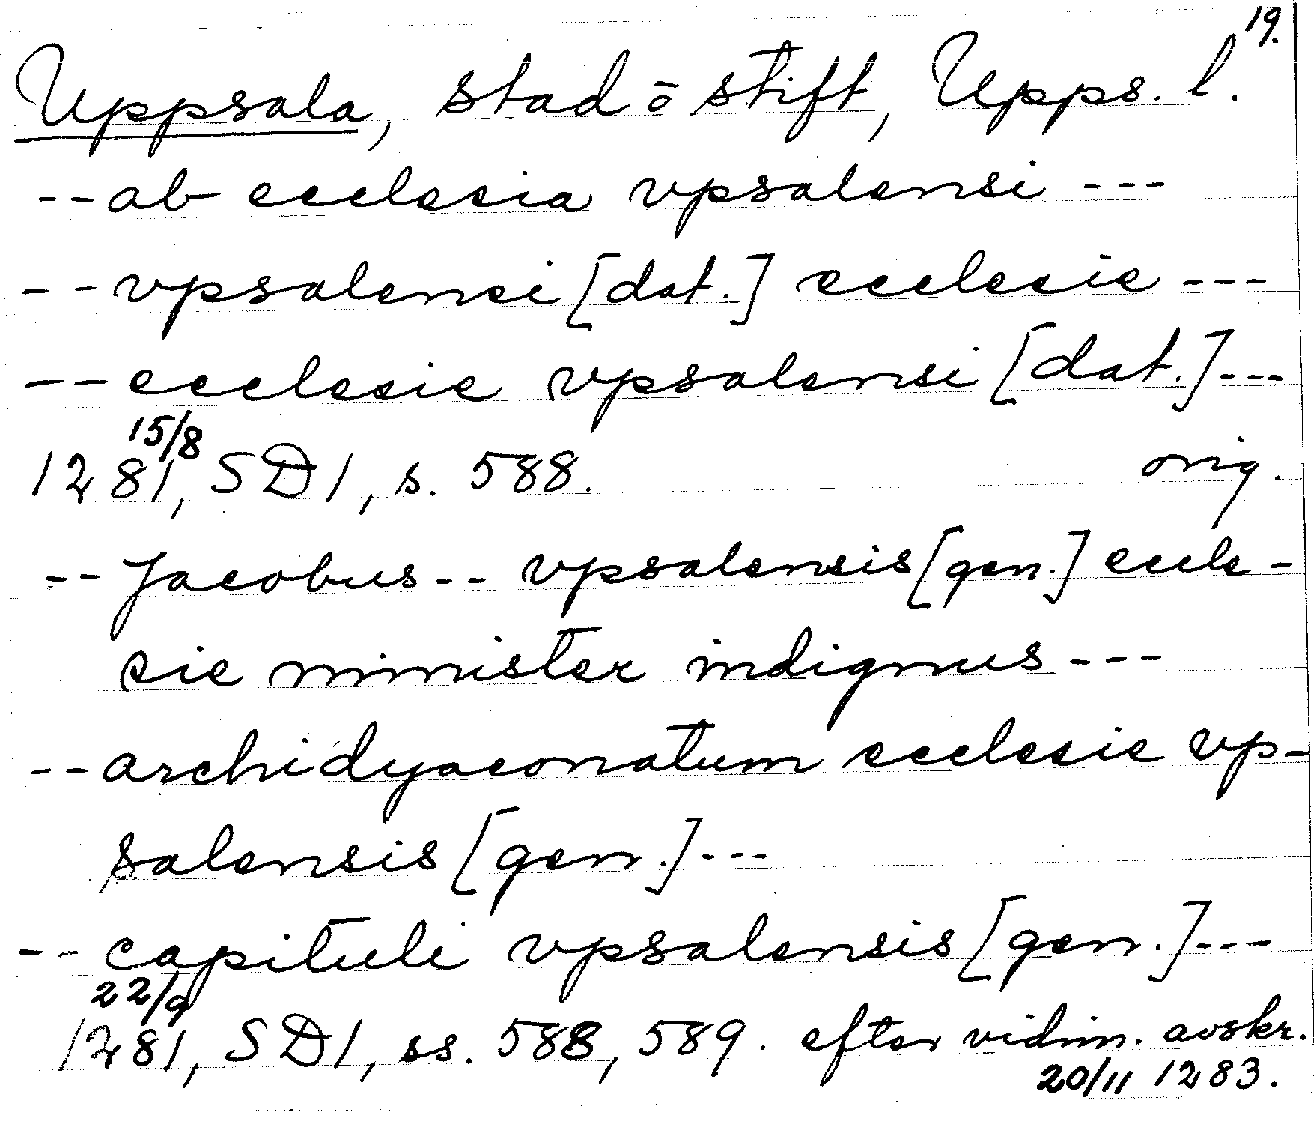 19.
Uppsala, stad o stift, Upps. l.
-- ab ecclesia vpsalensi ---
-- vpsalensi [dat.] ecclesie ---
-- ecclesie vpsalensi [dat.] ---
15/8
1281, SD1, s. 588. orig.
-- Jacobus -- vpsalensis [gen.] eccle-
sie minister indignus ---
-- archidyaconatum ecclesie vp-
salensis [gen.] ---
-- capituli vpsalensis [gen.] ---
22/9
1281, SD1, ss. 588, 589. efter vidim. avskr.
20/11 1283.